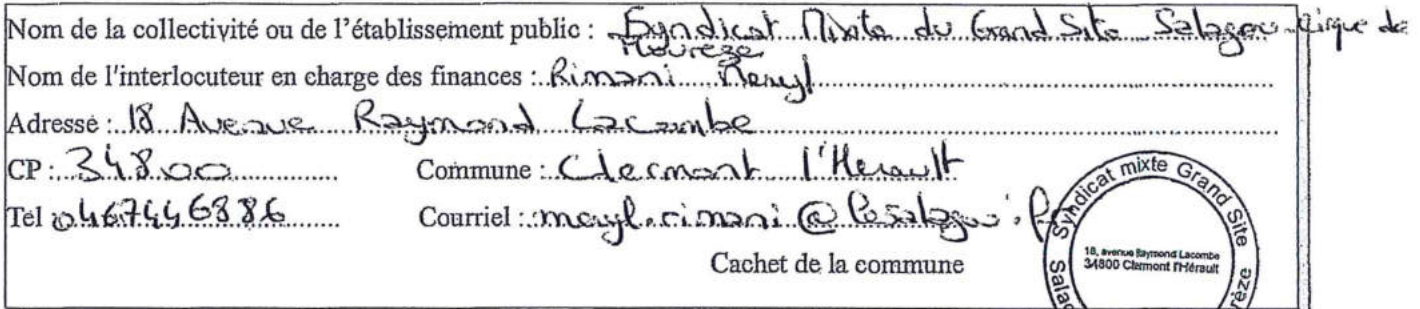 Nom de la collectivité ou de l'établissement public : Syndicat Mixte du Grand Site Salagou-Cirque de
Mourèze
Nom de l'interlocuteur en charge des finances : Rimani Meryl
Adresse : 18 Avenue Raymond Lacombe
CP : 34800 Commune : Clermont l'Herault
Tel 0467446886 Courriel : meryl.rimani@lesalagou.fr
Cachet de la commune
Syndicat mixte Grand Site
18, avenue Raymond Lacombe
34800 Clermont l'Hérault